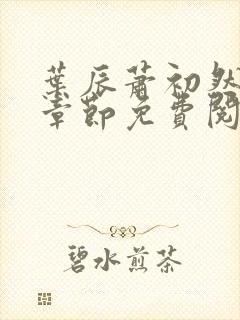 葉辰蕭初然
章節免費閱
碧水煎茶